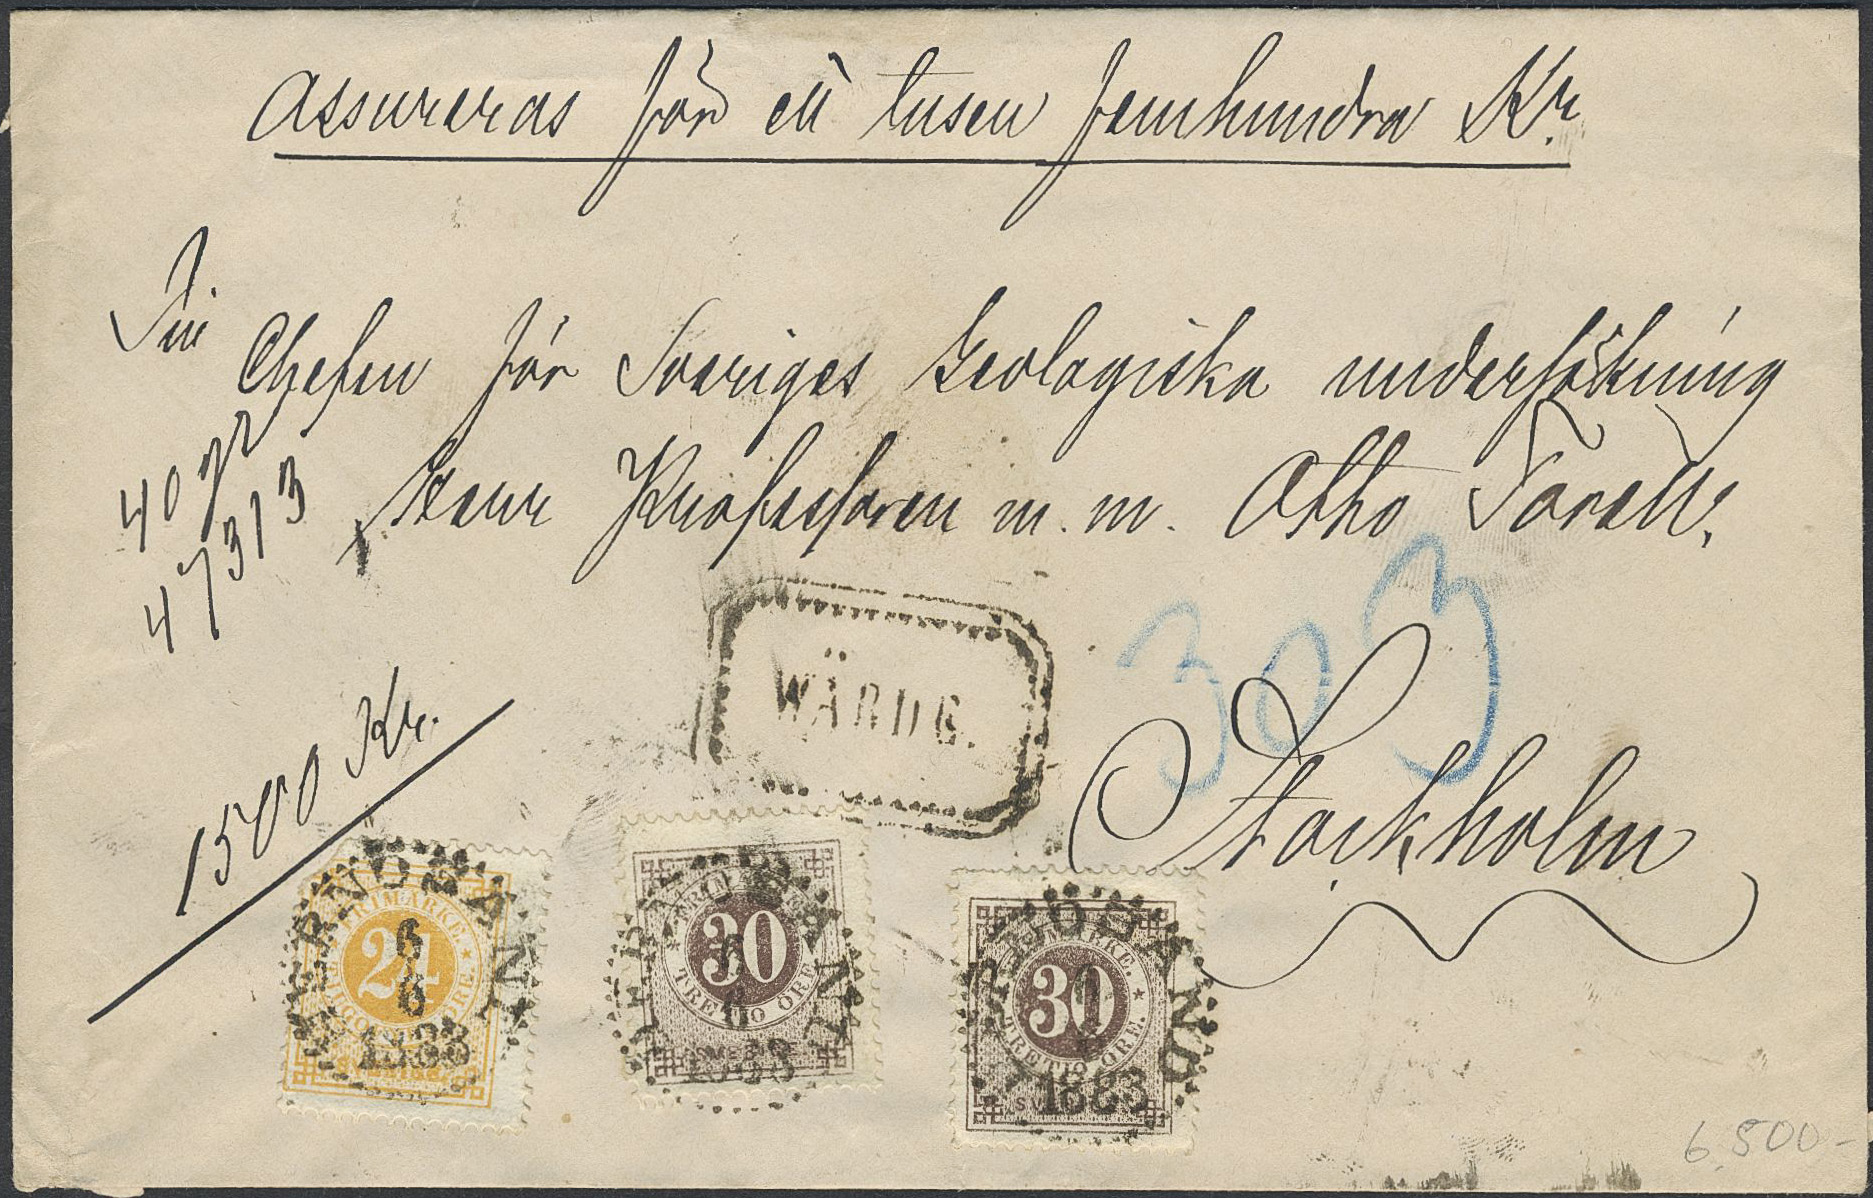 Assureras för ett tusen femhundra Kr.
Till
Chefen för Sveriges Geologiska undersökning
Herr Professoren m. m. Otto Torell.
40 gr
47313
WÄRDE.
303
1500 Kr.
Stockholm
HERNÖSAND
6
6
1883
FRIMÄRKE.
24
TJUGOFYRA ÖRE.
SVERIGE
HERNÖSAND
6
6
1883
FRIMÄRKE.
30
TRETTIO ÖRE.
SVERIGE
HERNÖSAND
1883
FRIMÄRKE.
30
TRETTIO ÖRE.
SVERIGE
6.500-